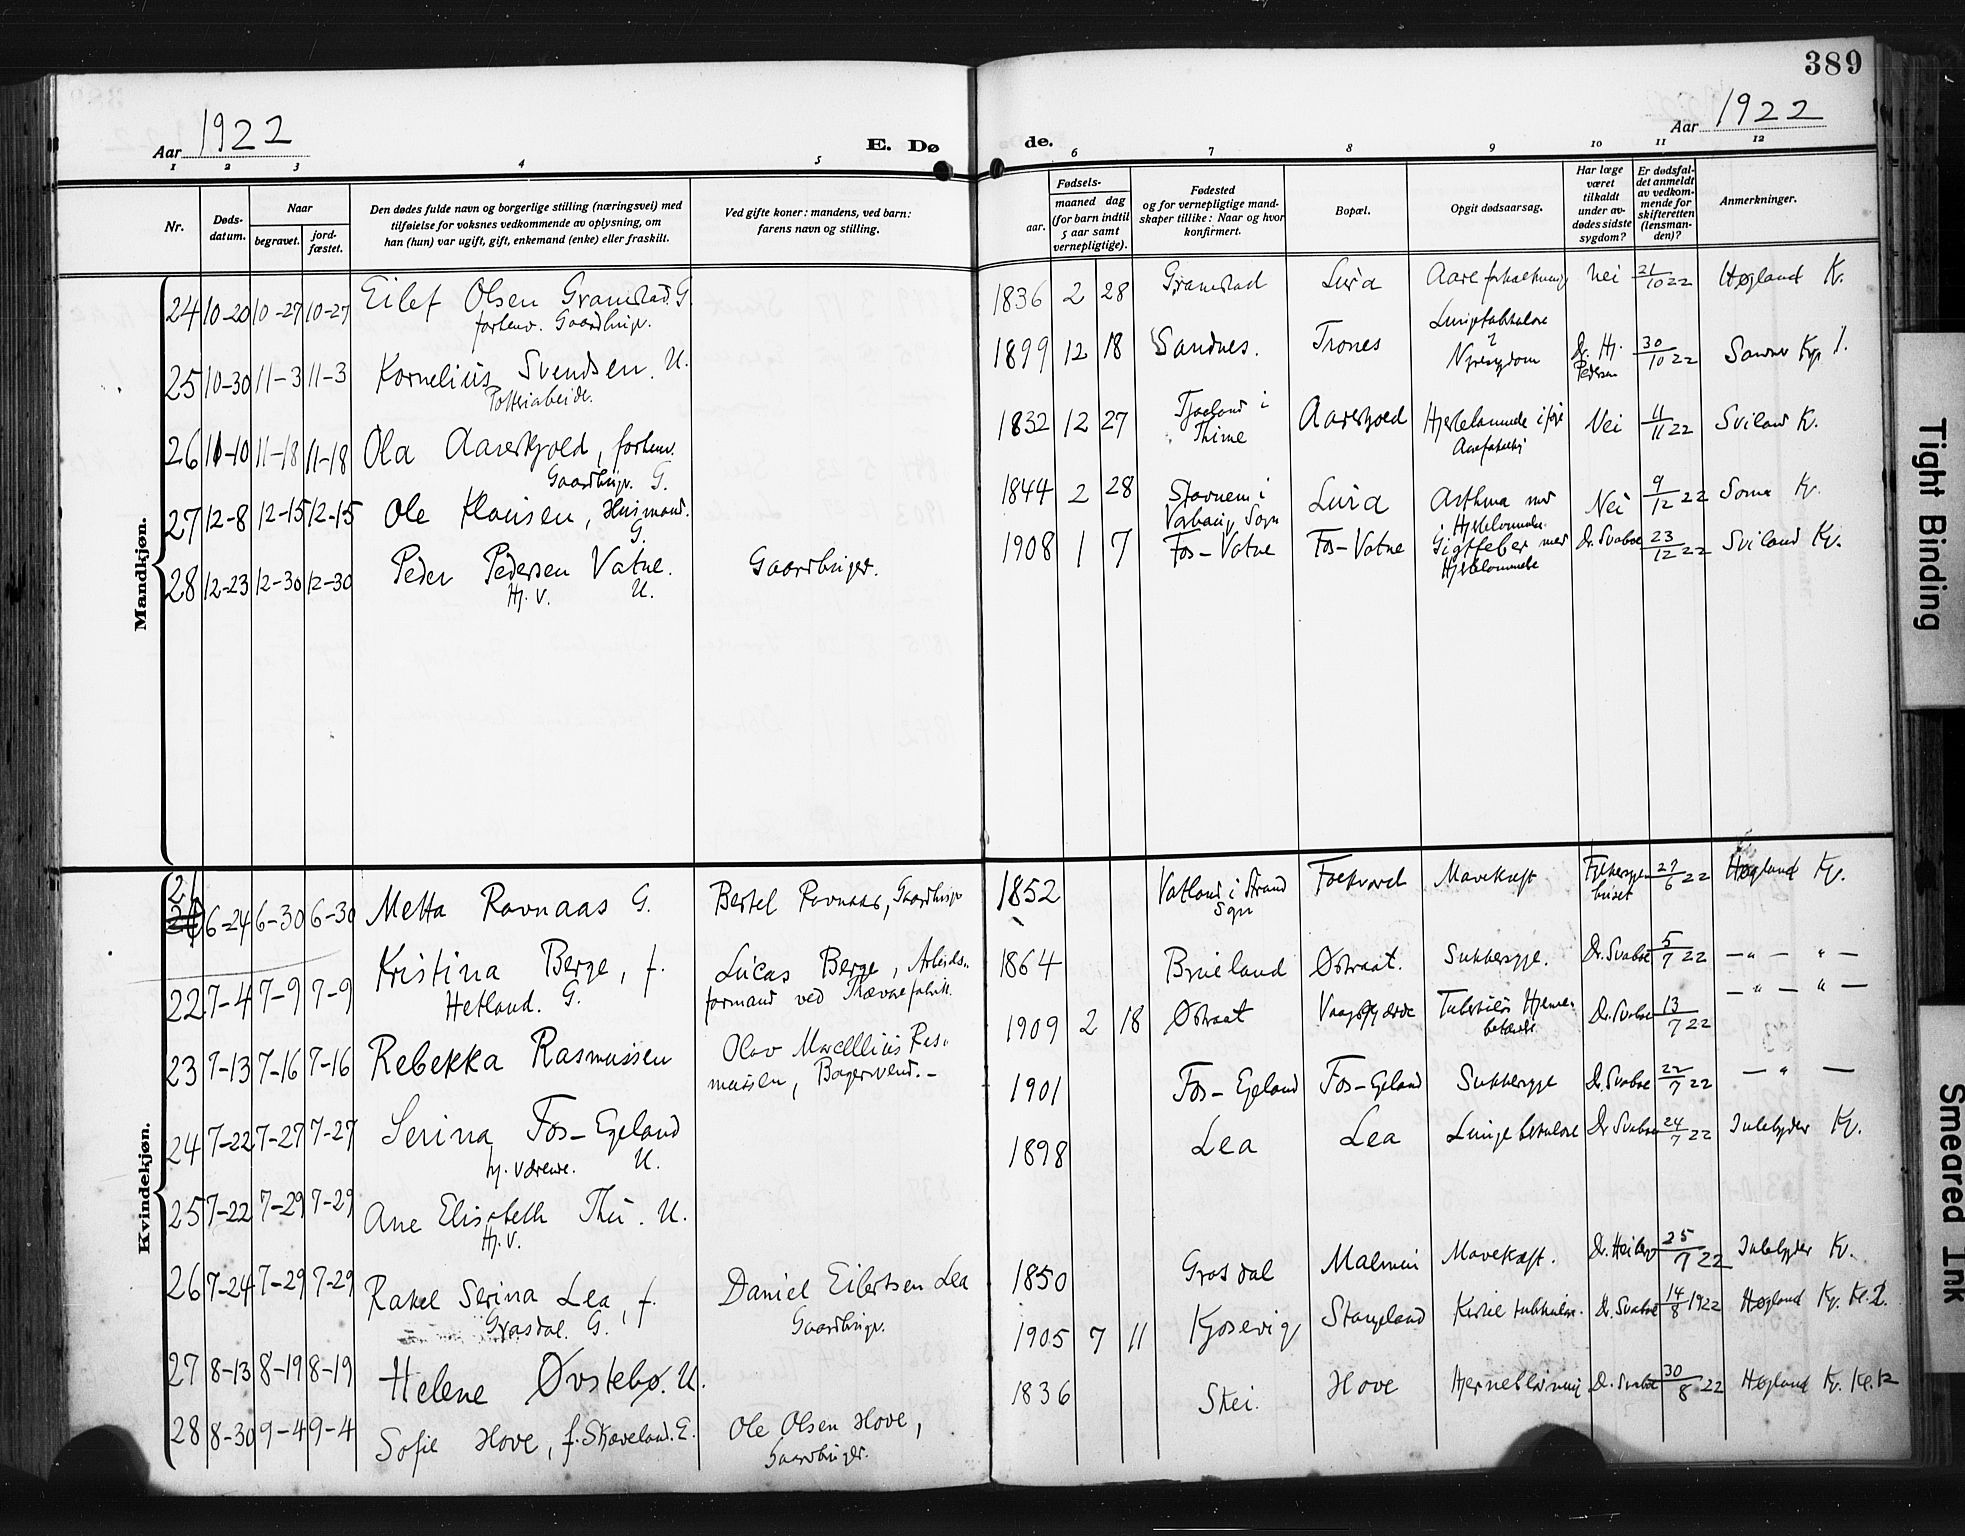 389
Aar 1922
E. Dø
de.
Aar 1922
1 2 3 4 5 6 7 8 9 10 11 12
Nr.
Døds-
datum.
Naar
begravet.
jord-
fæstet.
Den dødes fulde navn og borgerlige stilling (næringsvei) med
tilføielse for voksnes vedkommende av oplysning, om
han (hun) var ugift, gift, enkemand (enke) eller fraskilt.
Ved gifte koner: mandens, ved barn:
farens navn og stilling.
Fødsels-
aar.
maaned dag
(for barn indtil
5 aar samt
vernepligtige).
Fødested
og for vernepligtige mand-
skaper tillike: Naar og hvor
konfirmert.
Bopæl.
Opgit dødsaarsag.
Har læge
været
tilkaldt
under av-
dødes sidste
sygdom?
Er dødsfal-
det anmeldt
av vedkom-
mende for
skifteretten
(lensman-
den)?
Anmerkninger.
Mandkjøn.
24 10-20 10-27 10-27 Eilef Olsen Gramstad. G.
forhenv. Gaardbruger.
1836 2 28 Gramstad Lura Aareforkalkning Nei 21/10 22 Høgland Kv.
25 10-30 11-3 11-3 Kornelius Svendsen. U.
Potteriarbeider.
1899 12 18 Sandnes. Trones Lungetuberkulose
?
Nyresygdom Dr. Hj.
Pedersen 30/10 22
26 11-10 11-18 11-18 Ola Aareskjold, forhenv.
Gaardbruger. G.
1832 12 27 Tjaaland i
Thime Aareskjold Nei 11/11 22 Sviland Kv.
27 12-8 12-15 12-15 Ole Hansen, Husmand.
G.
1844 2 28 Stavnem i
Sogn Lura Asthma med
Nei 9/12 22 Soma Kv.
28 12-23 12-30 12-30 Peder Pedersen Vatne.
Hj. V. U.
Gaardbruger.
1908 1 7 Fos-Vatne Fos-Vatne Gigtfeber med
Hjertelammelse Dr. Svaboe 23/12 22 Sviland Kv.
Kvindekjøn.
21 6-24 6-30 6-30 Metta Ravnaas G. Bertel Ravnaas, Gaardbruger
1852 Vatland i Strand
Sogn Mavekræft 27/6 22 Høgland Kv.
22 7-4 7-9 7-9 Kristina Berge, f.
Hetland. G.
Lucas Berge, Arbeids-
formand ved Trævarefabrik.
1864 Brueland Østraat. Sukkersyge. Dr. Svaboe 5/7 22 — " — " —
23 7-13 7-16 7-16 Rebekka Rasmussen Olav Marcellius Ras-
mussen, Bagersvend. -
1909 2 18 Østraat Dr. Svaboe 13/7 22 — " — " —
24 7-22 7-27 7-27 Serina Fos-Egeland
hj. værende. U.
1901 Fos-Egeland Fos-Egeland Sukkersyge Dr. Svaboe 22/7 22 — " —
25 7-22 7-29 7-29 Ane Elisabeth Thu. U.
Hj. V.
1898 Lea Lea Lungetuberkulose Dr. Svaboe 24/7 22 Julebygder Kv.
26 7-24 7-29 7-29 Rakel Serina Lea, f.
Grasdal. G.
Daniel Eilertsen Lea
Gaardbruger.
1850 Grasdal Malmin Mavekræft. 25/7 22 Julebygder Kv.
27 8-13 8-19 8-19 Helene Øvstebø. U.
1905 7 11 Kjosevig Stangeland Dr. Svaboe 14/8 1922 Høgland Kv. Kl. 2.
28 8-30 9-4 9-4 Sofie Hove, f. Skaveland. E. Ole Olsen Hove,
Gaardbruger.
1836 Skei. Hove Hjerneblødning Dr. Svaboe 30/8 22 Høgland Kv. Kl. 12
Tight Binding
Smeared Ink